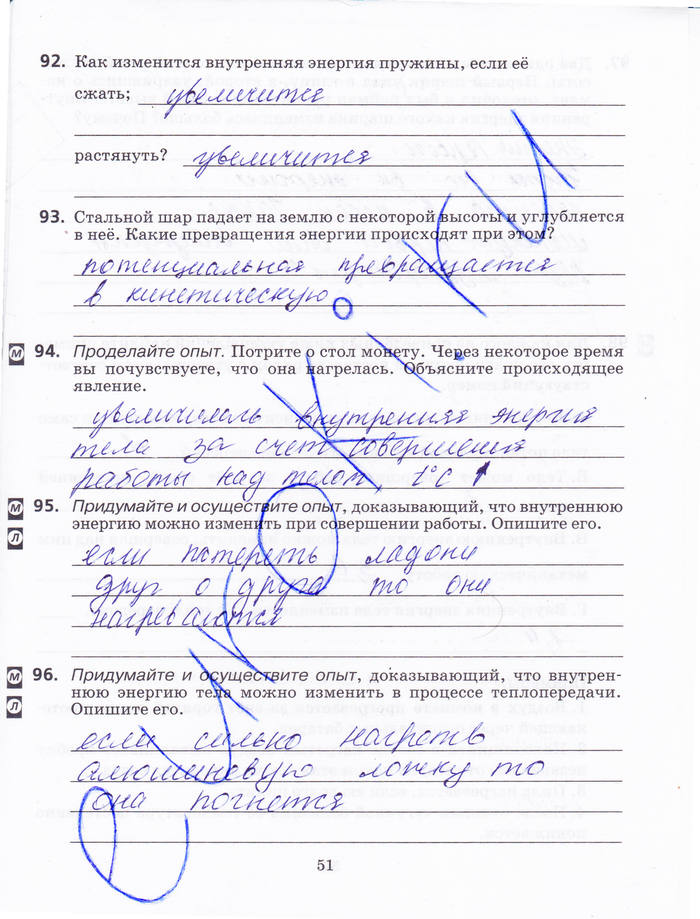 92. Как изменится внутренняя энергия пружины, если её
сжать; увеличится
растянуть? увеличится
93. Стальной шар падает на землю с некоторой высоты и углубляется
в неё. Какие превращения энергии происходят при этом?
потенциальная превращается
в кинетическую
М 94. Проделайте опыт. Потрите о стол монету. Через некоторое время
вы почувствуете, что она нагрелась. Объясните происходящее
явление.
увеличилаль внутренняя энергия
тела за счет совершения
работы над телом, t°C ↑
М 95. Придумайте и осуществите опыт, доказывающий, что внутреннюю
Л энергию можно изменить при совершении работы. Опишите его.
если потереть ладони
друг о друга то они
нагреваются
М 96. Придумайте и осуществите опыт, доказывающий, что внутрен-
Л нюю энергию тела можно изменить в процессе теплопередачи.
Опишите его.
если сильно нагреть
алюминевую ложку то
она погнется
51